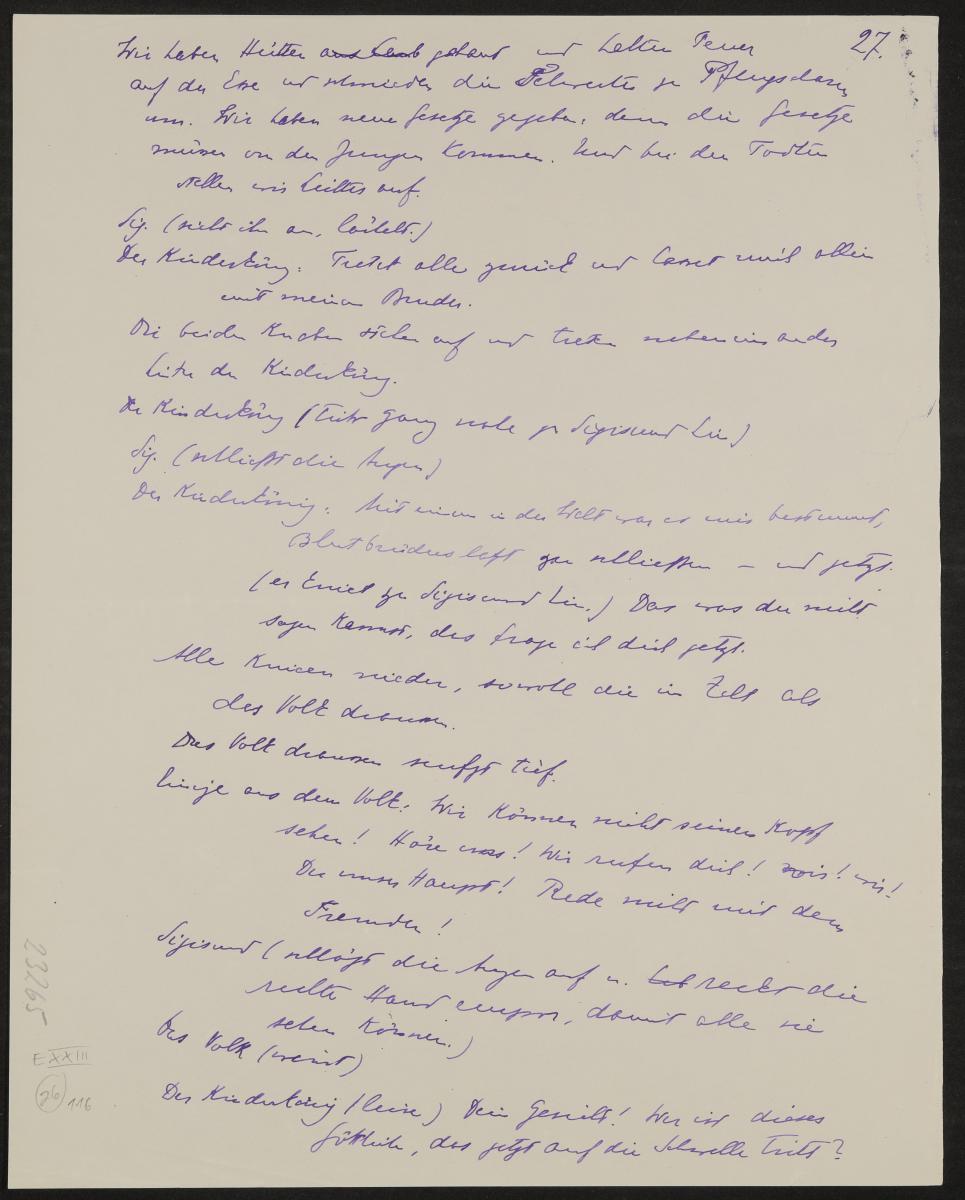 27.
Wir haben Hütten aus Laub gebaut und halten Feuer
auf der Esse und schmieden die Schwerter zu Pflugscharen
um. Wir haben neue Gesetze gegeben, denn die Gesetze
müssen von den Jungen kommen. Und bei den Todten
stellen wir Lichter auf.
Sig. (sieht ihn an, lächelt.)
Der Kinderkönig: Tretet alle zurück und lasset mich allein
mit meinem Bruder.
Die beiden Knaben stehen auf und treten nebeneinander
hinter den Kinderkönig.
Der Kinderkönig (tritt ganz nahe zu Sigismund hin)
Sig. (schließt die Augen)
Der Kinderkönig: Mit einem in der Welt war es mir bestimmt,
Blutbrüderschaft zu schließen – und jetzt.
(er kniet zu Sigismund hin.) Das was du mich
sagen kannst, das frage ich dich jetzt.
Alle knieen nieder, sowohl die im Zelt als
das Volk draussen.
Das Volk draussen seufzt tief.
Einige aus dem Volk: Wir können nicht seinen Kopf
sehen! Höre uns! Wir rufen dich! wir! wir!
Du unser Haupt! Rede nicht mit dem
Fremden!
Sigismund (schlägt die Augen auf u. reckt die
rechte Hand empor, damit alle sie
sehen können.)
Das Volk (weint)
Der Kinderkönig (leise) Dein Gesicht! Wer ist dieses
Göttliche, das jetzt auf die Schwelle tritt?
23265
E XXIII
26
116